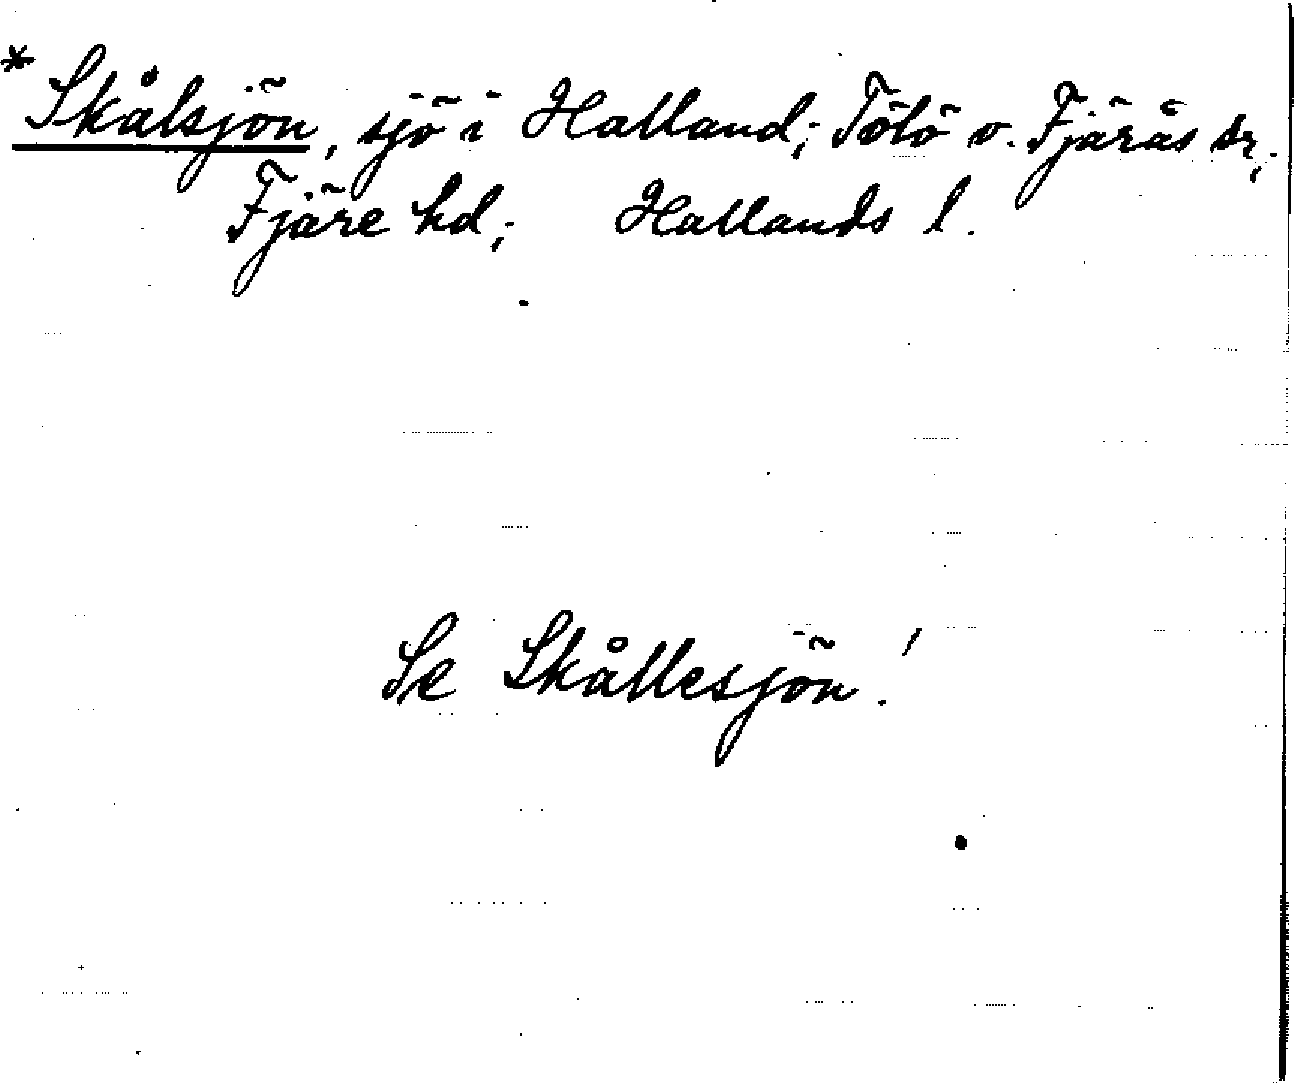 * Skålsjön, sjö i Halland; Tölö o. Fjärås sr;
Fjäre hd; Hallands l.
Se Skållesjön!